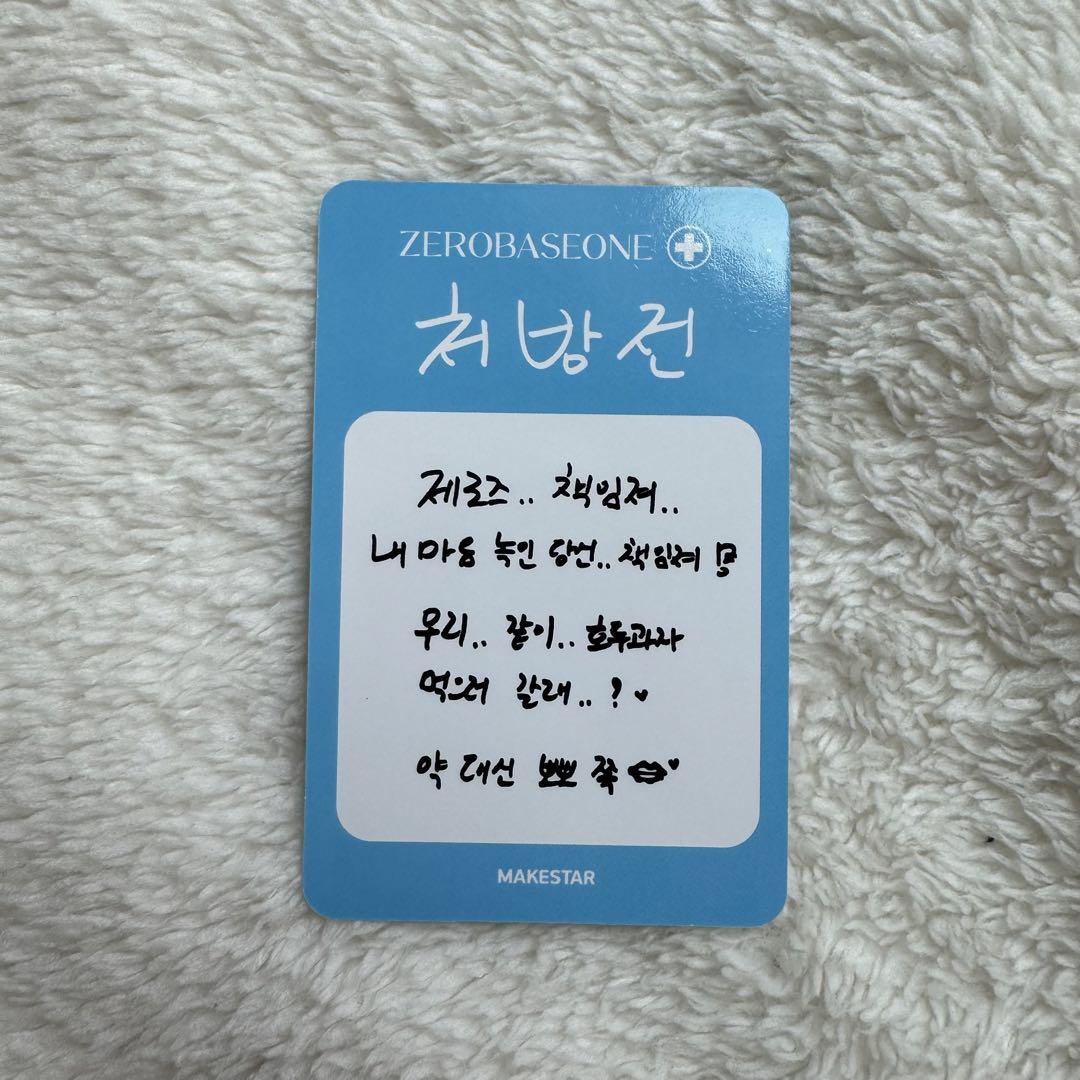 ZEROBASEONE
처방전
제로즈.. 책임져..
내 마음 녹인 당신.. 책임져 !!
우리.. 같이.. 호두과자
먹으러 갈래..? ♥
약 대신 뽀뽀 쪽 ♥
MAKESTAR